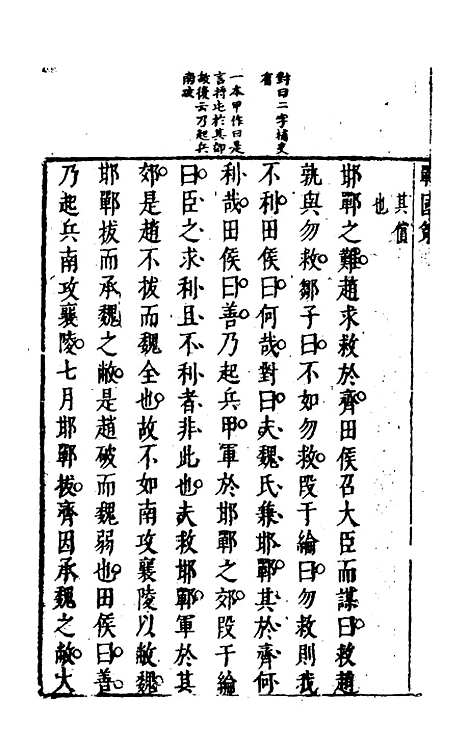 對曰二字補史
有
一本甲作曰是
言將屯於其郊
故後云乃起兵
南攻
戰國策
其值
也
邯鄲之難趙求救於齊田侯召大臣而謀曰救趙
孰與勿救鄒子曰不如勿救段干綸曰勿救則我
不利田侯曰何哉對曰夫魏氏兼邯鄲其於齊何
利哉田侯曰善乃起兵甲軍於邯鄲之郊段干綸
曰臣之求利且不利者非此也夫救邯鄲軍於其
郊是趙不拔而魏全也故不如南攻襄陵以敝魏
邯鄲拔而承魏之敝是趙破而魏弱也田侯曰善
乃起兵南攻襄陵七月邯鄲拔齊因承魏之敝大